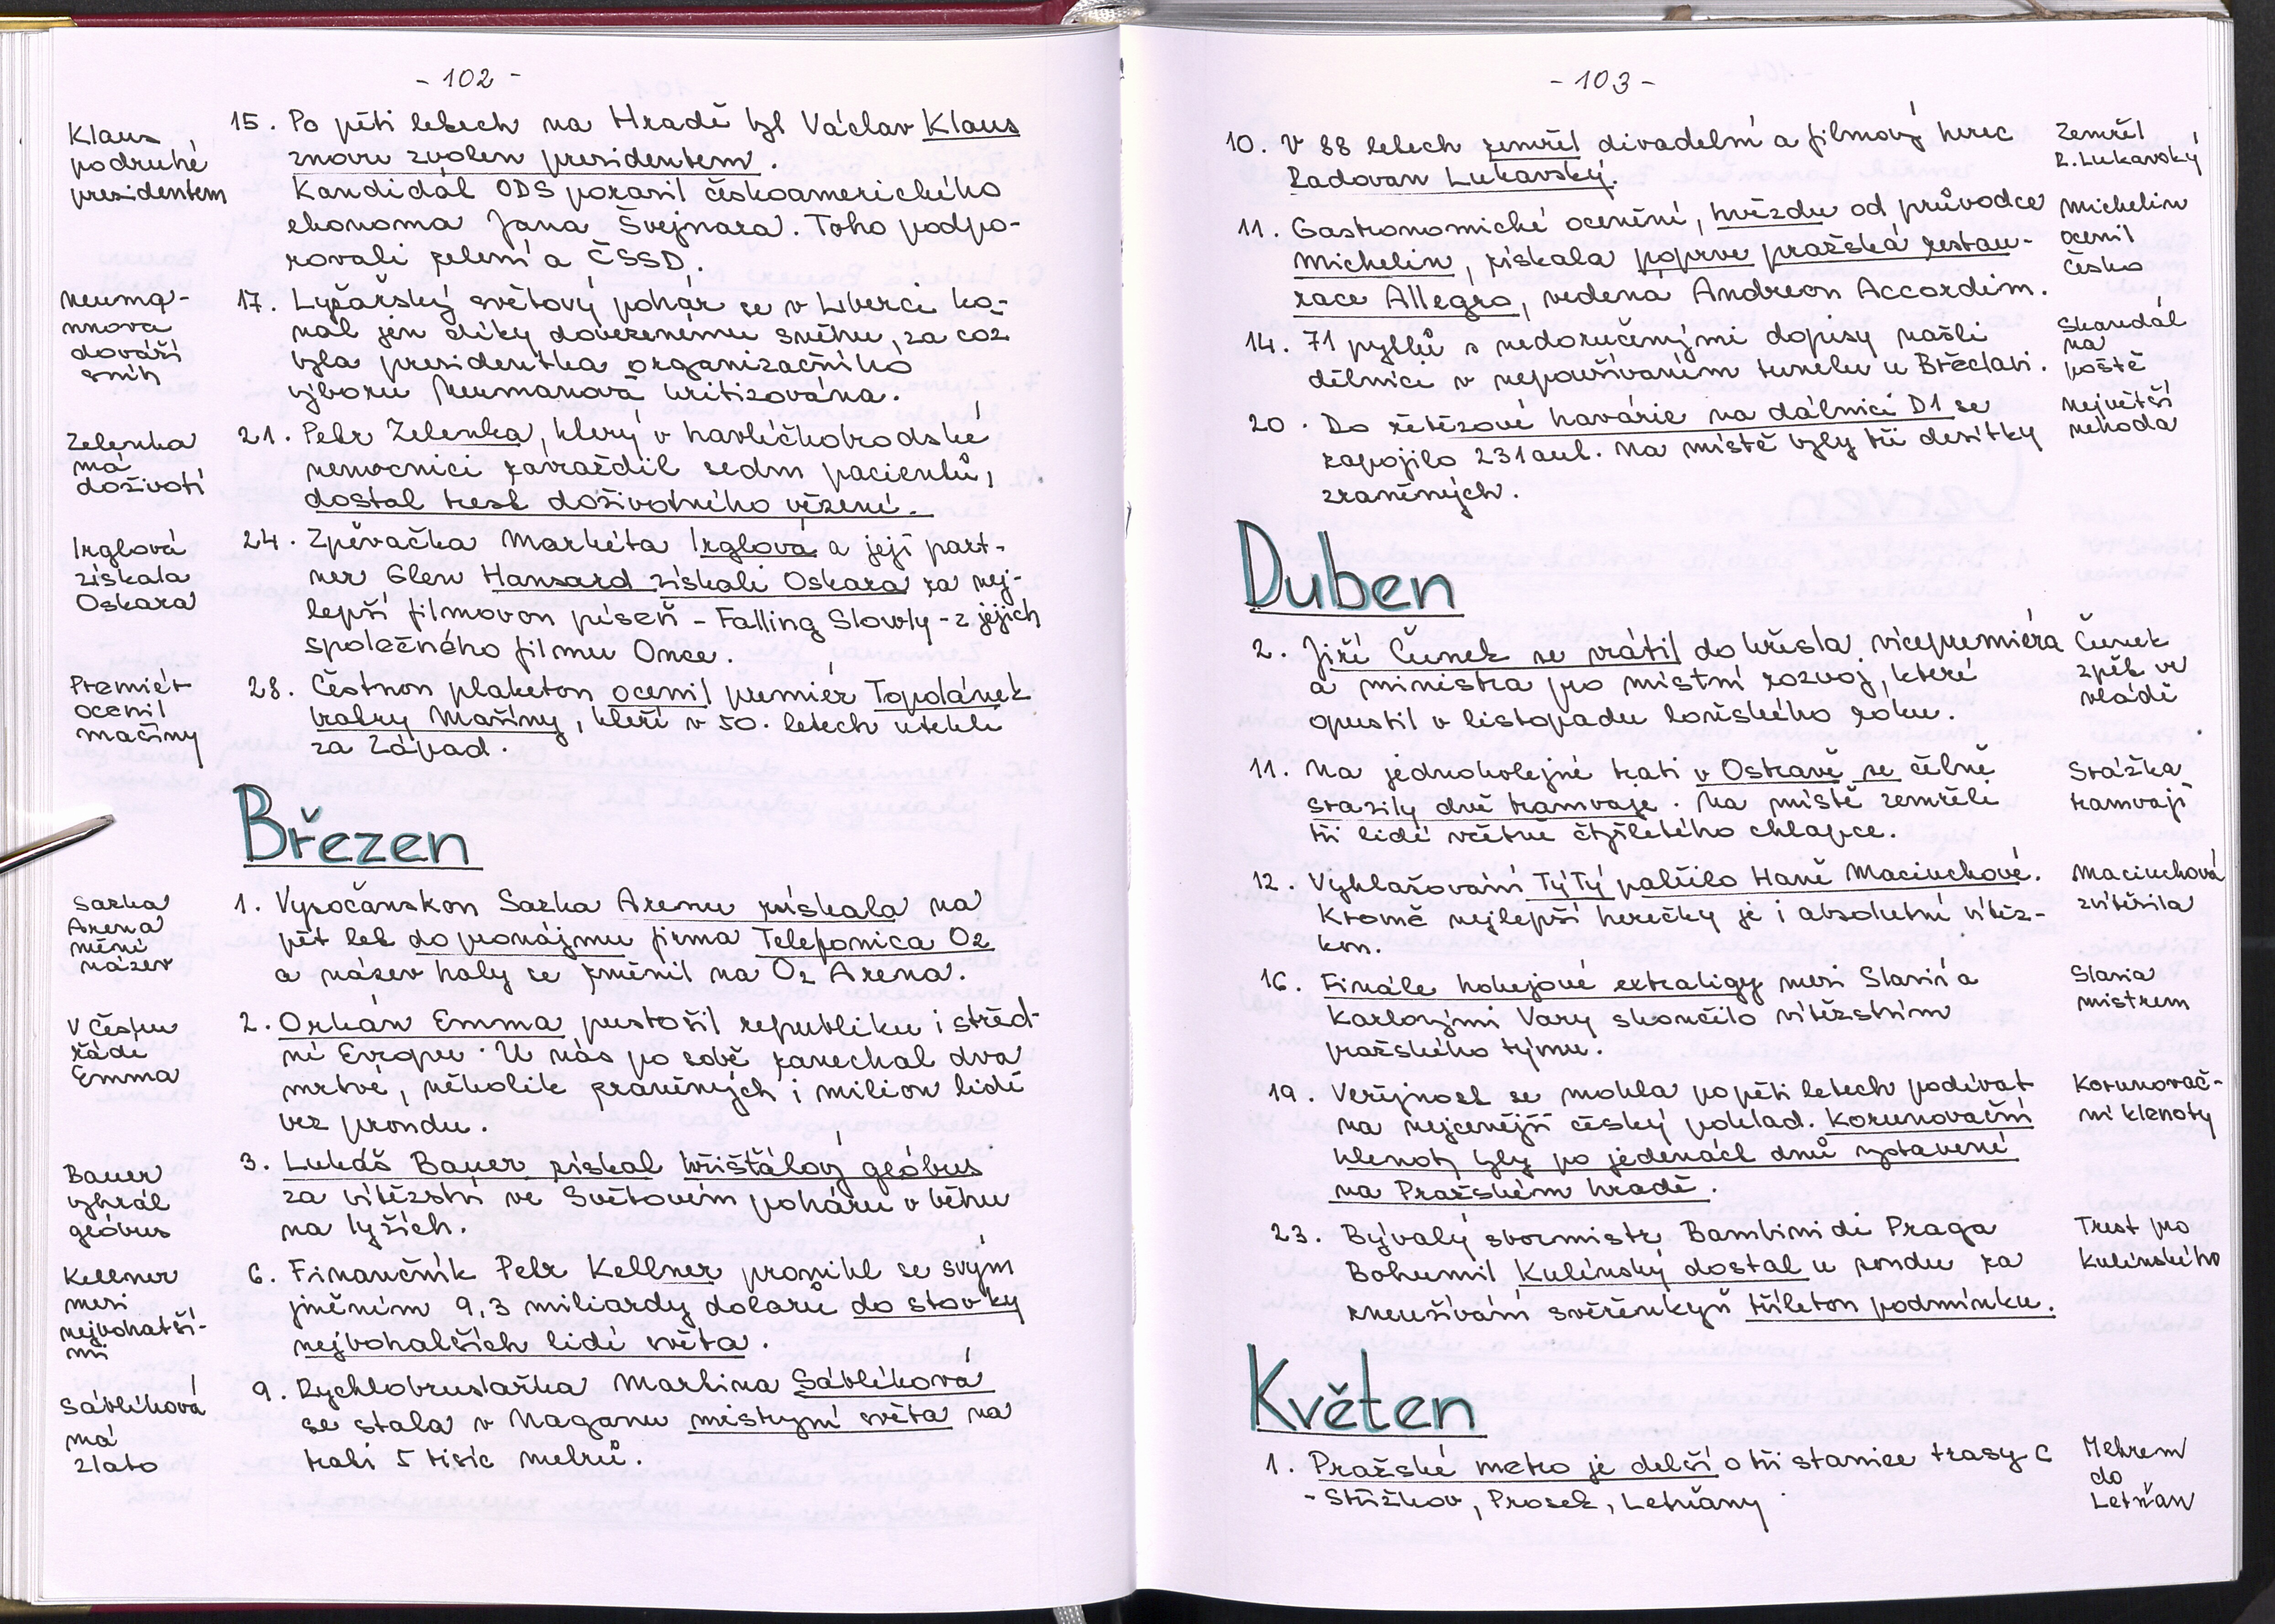 - 102 -
Klaus
podruhé
presidentem
15. Po pěti letech na Hradě byl Václav Klaus
znovu zvolen presidentem.
Kandidát ODS porazil českoamerického
ekonoma Jana Švejnara. Toho podpo-
rovali zelení a ČSSD.
Neuma-
nnová
dováží
sníh
17. Lyžařský světový pohár se v Liberci ko-
nal jen díky dovezenému sněhu, za což
byla presidentka organizačního
výboru Neumanová kritizována.
Zelenka
má
doživotí
21. Petr Zelenka, který v havlíčkobrodské
nemocnici zavraždil sedm pacientů,
dostal trest doživotního vězení.
Irglová
získala
Oskara
24. Zpěvačka Markéta Irglová a její part-
ner Glen Hansard získali Oskara za nej-
lepší filmovou píseň - Falling Slowly - z jejich
společného filmu Once.
Premiér
ocenil
mašíny
28. Čestnou plaketou ocenil premiér Topolánek
bratry Mašíny, kteří v 50. letech utekli
za Západ.
Březen
Sazka
Arena
mění
název
1. Vysočanskou Sazka Arenu získala na
pět let do pronájmu firma Telefonica O2
a název haly se změnil na O2 Arena.
V Česku
řádí
Emma
2. Orkán Emma pustošil republiku i střed-
ní Evropu. U nás po sobě zanechal dva
mrtvé, několik zraněných i milion lidí
bez proudu.
Bauer
vyhrál
glóbus
3. Lukáš Bauer získal křišťálový glóbus
za vítězství ve Světovém poháru v běhu
na lyžích.
Kellner
mezi
nejbohatší-
mi
6. Finančník Petr Kellner pronikl se svým
jměním 9,3 miliardy dolarů do stovky
nejbohatších lidí světa.
Sáblíková
má
zlato
9. Rychlobruslařka Martina Sáblíková
se stala v Naganu mistryní světa na
trati 5 tisíc metrů.
- 103 -
10. V 88 letech zemřel divadelní a filmový herec
Radovan Lukavský.
Zemřel
R. Lukavský
11. Gastronomické ocenění, hvězdu od průvodce
Michelin, získala poprvé pražská restau-
race Allegro, vedená Andreou Accordim.
Michelin
ocenil
Česko
14. 71 pytlů s nedoručenými dopisy našli
dělníci v nepoužívaném tunelu u Břeclavi.
Skandál
na
poště
20. Do řetězové havárie na dálnici D1 se
zapojilo 231 aut. Na místě byly tři desítky
zraněných.
největší
nehoda
Duben
2. Jiří Čunek se vrátil do křesla vicepremiéra
a ministra pro místní rozvoj, které
opustil v listopadu loňského roku.
Čunek
zpět ve
vládě
11. Na jednokolejné trati v Ostravě se čelně
srazily dvě tramvaje. Na místě zemřeli
tři lidé včetně čtyřletého chlapce.
Srážka
tramvají
12. Vyhlašování TýTý patřilo Haně Maciuchové.
Kromě nejlepší herečky je i absolutní vítěz-
kou.
Maciuchová
zvítězila
16. Finále hokejové extraligy mezi Slavií a
Karlovými Vary skončilo vítězstvím
pražského týmu.
Slavia
mistrem
19. Veřejnost se mohla po pěti letech podívat
na nejcenější český poklad. Korunovační
klenoty byly po jedenáct dnů vystavené
na Pražském hradě.
Korunovač-
ní klenoty
23. Bývalý sbormistr Bambini di Praga
Bohumil Kulínský dostal u soudu za
zneužívání svěřenkyň tříletou podmínku.
Trest pro
Kulínského
Květen
1. Pražské metro je delší o tři stanice trasy C
- Střížkov, Prosek, Letňany
Metrem
do
Letňan